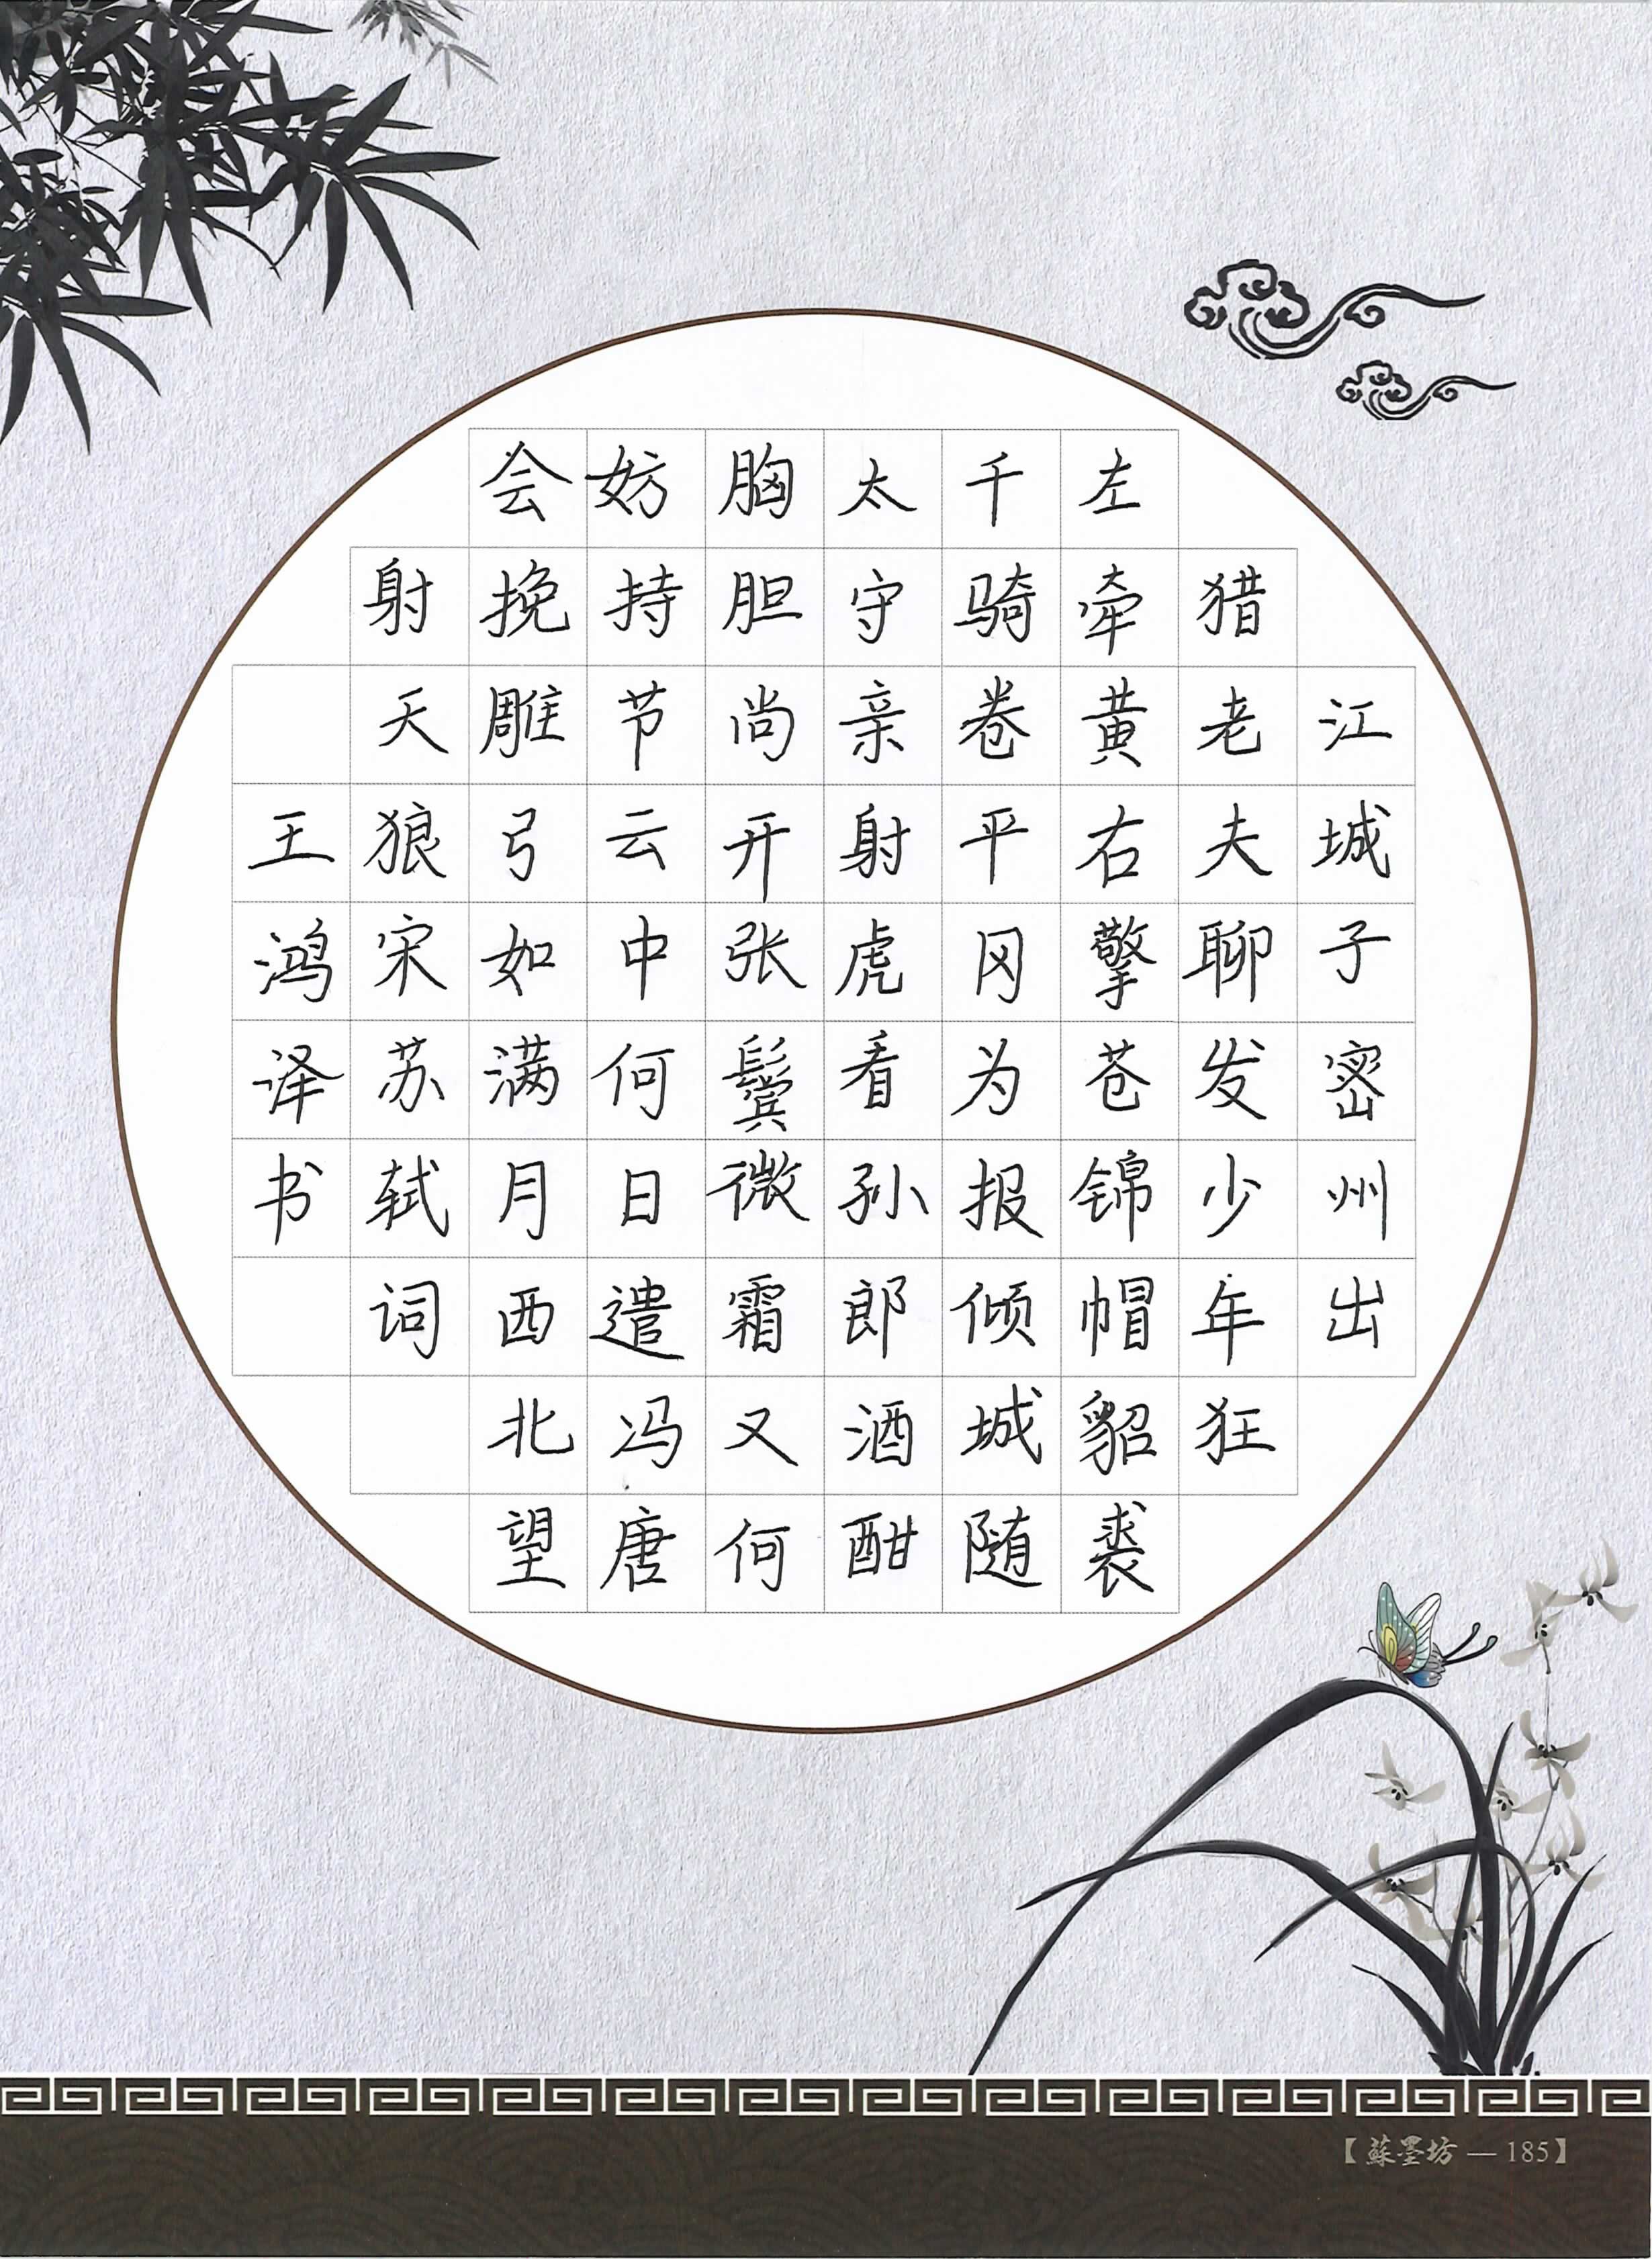 江城子密州出
猎老夫聊发少年狂
左牵黄右擎苍锦帽貂裘
千骑卷平冈为报倾城随
太守亲射虎看孙郎酒酣
胸胆尚开张鬓微霜又何
妨持节云中何日遣冯唐
会挽雕弓如满月西北望
射天狼宋苏轼词
王鸿泽书
【蘇墨坊—185】